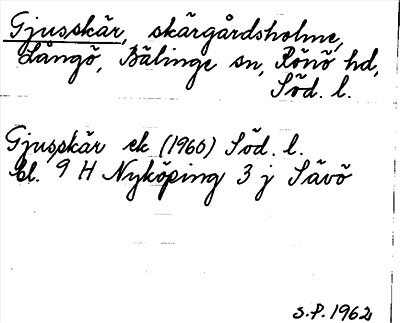 Gjusskär, skärgårdsholme,
Långö, Bälinge sn, Rönö hd,
Söd. l.
Gjusskär ek (1960) Söd. l.
bl. 9 H Nyköping 3 j Sävö
S.P. 1962